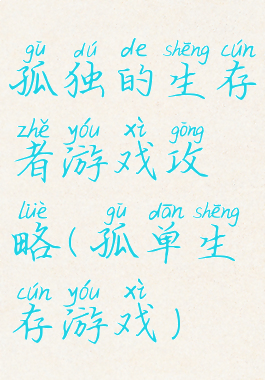 gū dú de shēng cún
孤独的生存
zhě yóu xì gōng
者游戏攻
lüè gū dān shēng
略(孤单生
cún yóu xì
存游戏)